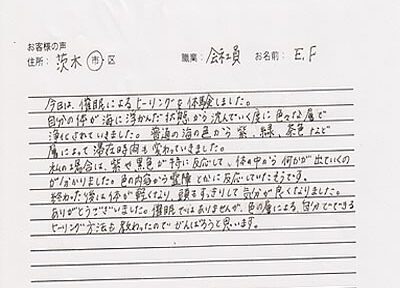 お客様の声
住所： 茨木 市・区 職業： 会社員 お名前： E.F
今日は、催眠によるヒーリングを体験しました。
自分の体が海に浮かんだ状態から沈んでいく度に色々な層で
浄化されていきました。普通の海の色から紫、緑、茶色など
層によって滞在時間も変わっていきました。
私の場合は、紫や黒色が特に反応して、体の中から何かが出ていくの
が分かりました。色の内容から霊障とかに反応していたようです。
終わった後には体が軽くなり、頭もすっきりして気分が良くなりました。
ありがとうございました。催眠ではありませんが、色の層による、自分でできる
ヒーリング方法も教わったのでがんばろうと思います。